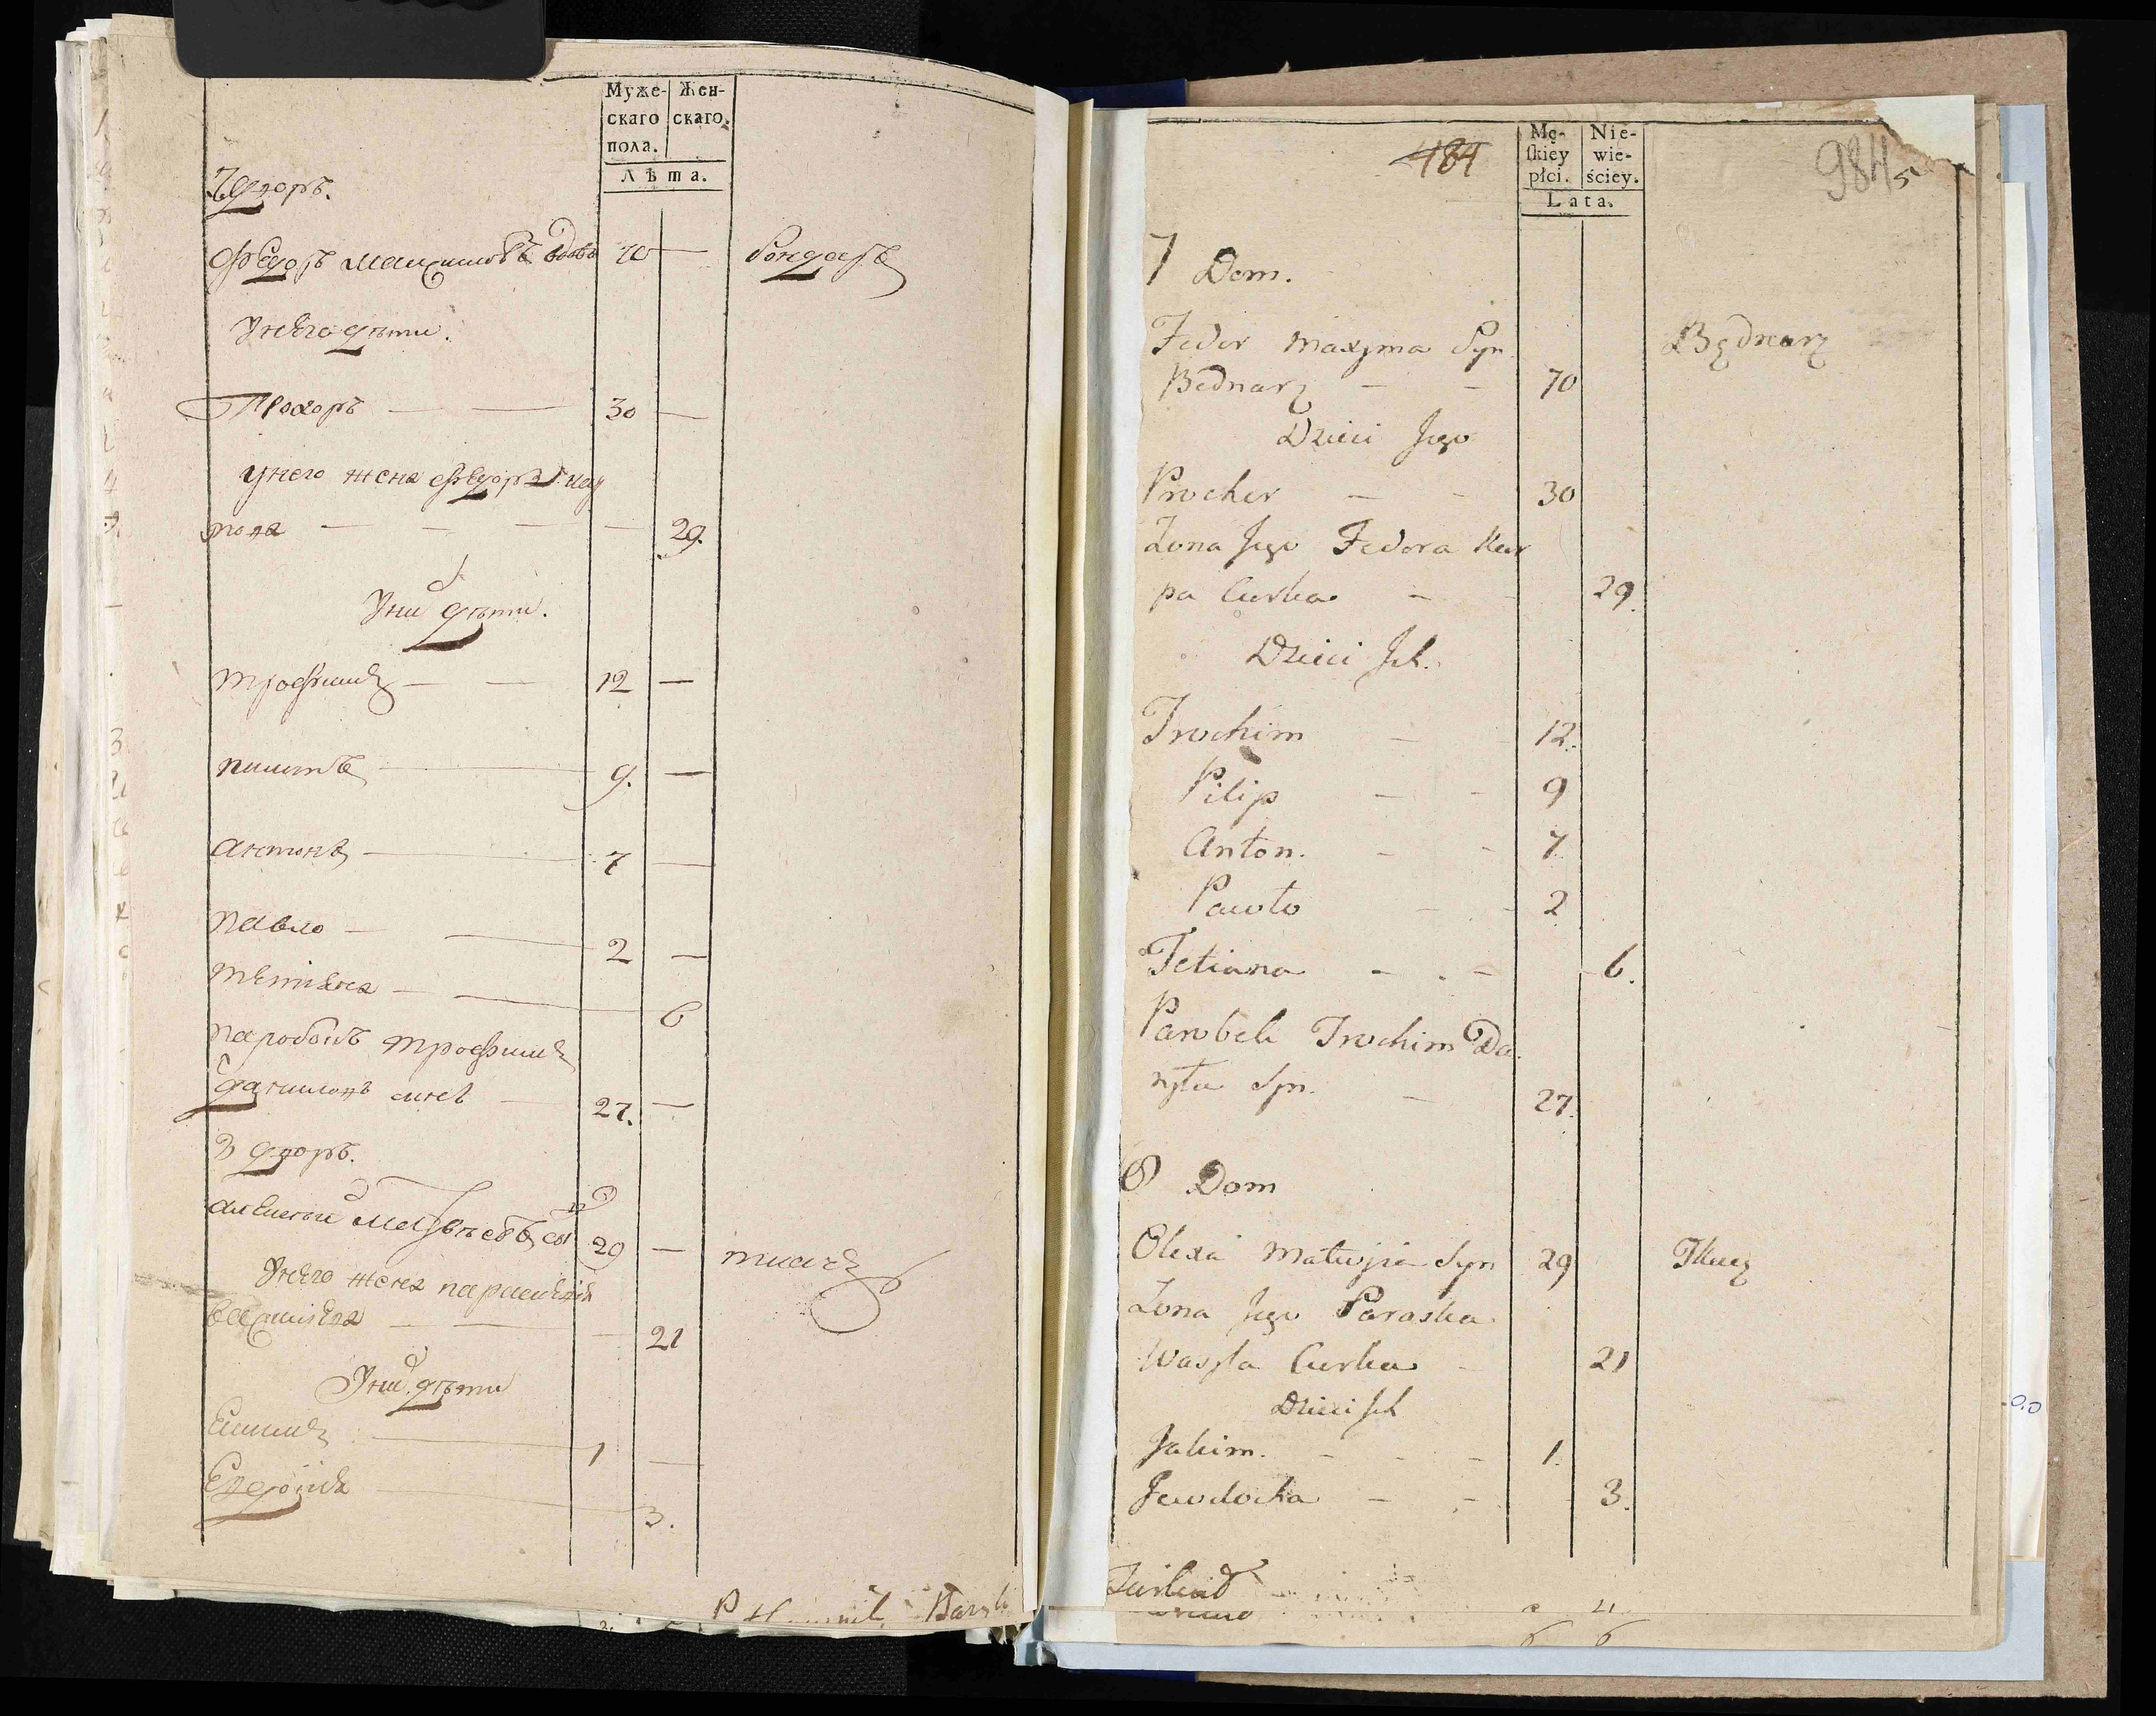 Муже- Жен-
скаго скаго.
пола.
Лѣта.
7 дворъ.
Федоръ Максимовъ вдовъ 70 — бондарь
У него дѣти.
Прохоръ — — 30 —
у него жена Федора Кар
пова — — — — 29.
У них дѣти.
трофимъ — — 12 —
пилипъ — 9. —
антонъ — 7 —
павло — — 2 —
тетіяна — — 6
паробокъ трофимъ
даниловъ сынъ — 27. —
8 дворъ.
алексей Матвѣевъ сы 29 — ткачъ
У него жена парасковія
василіева — — — 21
У них дѣти
Екимъ — 1 —
Евдокія — 3.
484
984
5
Mę- Nie-
skiey wie-
płci. ściey.
Lata.
7 Dom.
Fedor Maxyma Syn Będnarz
Bednarz — — 70
Dzieci Jego
Prochor — — 30
Zona Jego Fedora Kar
pa Curka — 29.
Dzieci Jch.
Trochim — 12.
Pilip — — 9
Anton. — — 7.
Pawło — — 2
Tetiana — — 6.
Parobek Trochim Da
nyła Syn. — 27.
8 Dom
Olexa Matwija Syn 29 Tkacz
Zona Jego Paraska
Wasyla Curka — 21
Dzieci Jch
Jakim. — — — 1.
Jewdocka — — 3.